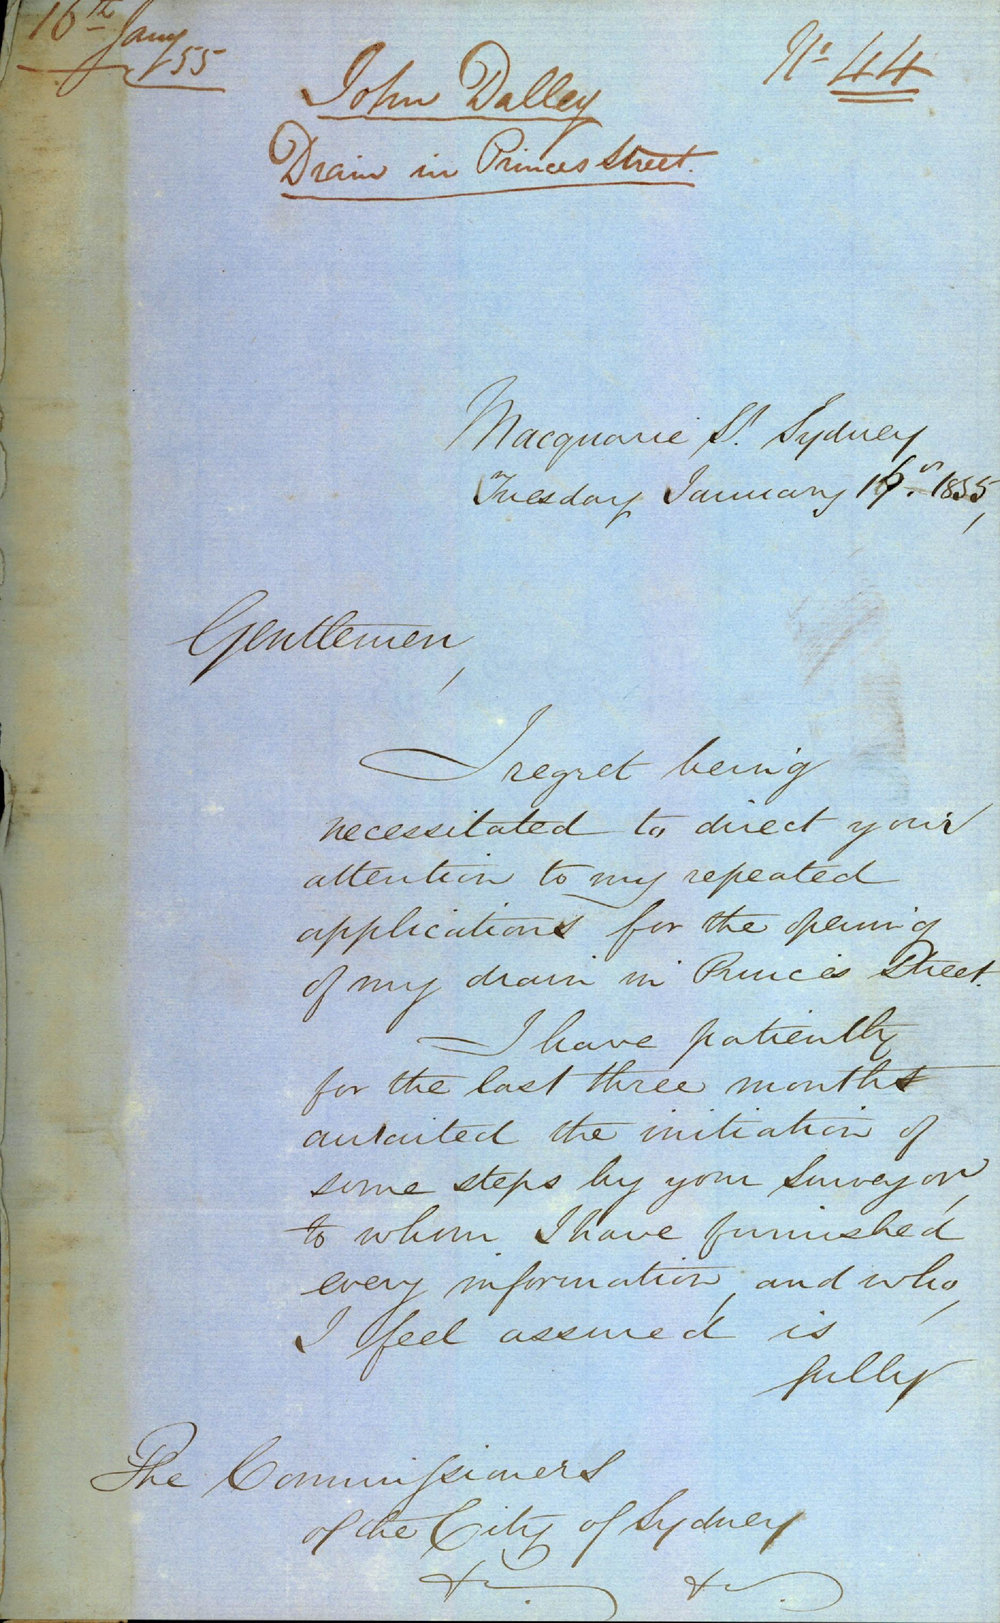 16th Jany /55
No 44
John Dalley
Drain in Princes Street.
Macquarie St. Sydney
Tuesday January 16th. 1855,
Gentlemen,
I regret being
necessitated to direct your
attention to my repeated
applications for the opening
of my drain in Princes Street.
I have patiently
for the last three months
awaited the initiation of
some steps by your Surveyor,
to whom I have furnished
every information, and who,
I feel assured is
fully
The Commissioners
of the City of Sydney